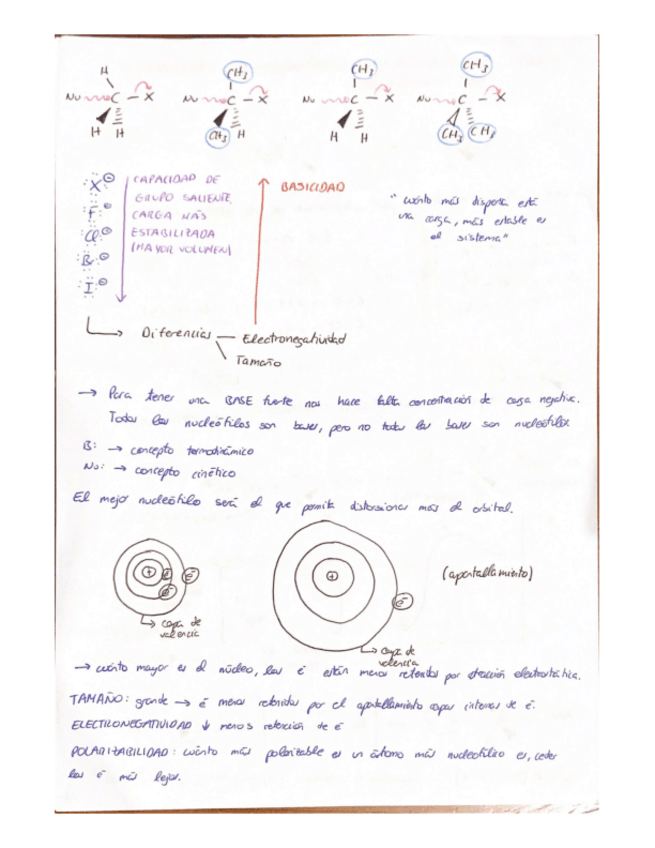 H
Nu C - X H H
CH3
Nu C - X CH3 H
CH3
Nu C - X H H
CH3
Nu C - X CH3 CH3
X⊖
F⊖
Cl⊖
Br⊖
I⊖
CAPACIDAD DE
GRUPO SALIENTE,
CARGA MÁS
ESTABILIZADA
(MAYOR VOLUMEN)
BASICIDAD
"cuánto más dispersa está
una carga, más estable es
el sistema"
Diferencias — Electronegatividad
Tamaño
→ Para tener una BASE fuerte nos hace falta concentración de carga negativa.
Todos los nucleófilos son bases, pero no todas las bases son nucleófilos.
B: → concepto termodinámico
Nu: → concepto cinético
El mejor nucleófilo será el que permita distorsionar más el orbital.
+ e⁻ e⁻ e⁻
capa de
valencia
+ e⁻
capa de
valencia
(apantallamiento)
→ cuánto mayor es el núcleo, los é están menos retenidos por atracción electrostática.
TAMAÑO: grande → é menos retenidos por el apantallamiento capas internas de é.
ELECTRONEGATIVIDAD ↓ menos retención de é
POLARIZABILIDAD: cuánto más polarizable es un átomo más nucleófilo es, ceder
los é más lejos.